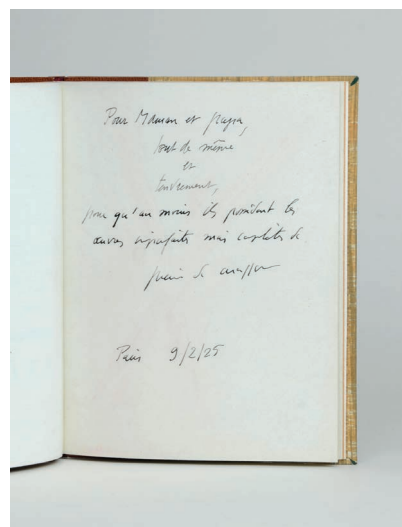 Pour Maman et papa,
tout de même
et
tendrement,
pour qu'au moins ils possèdent les
œuvres imparfaites mais complètes de
pierre de massot
Paris 9/2/25